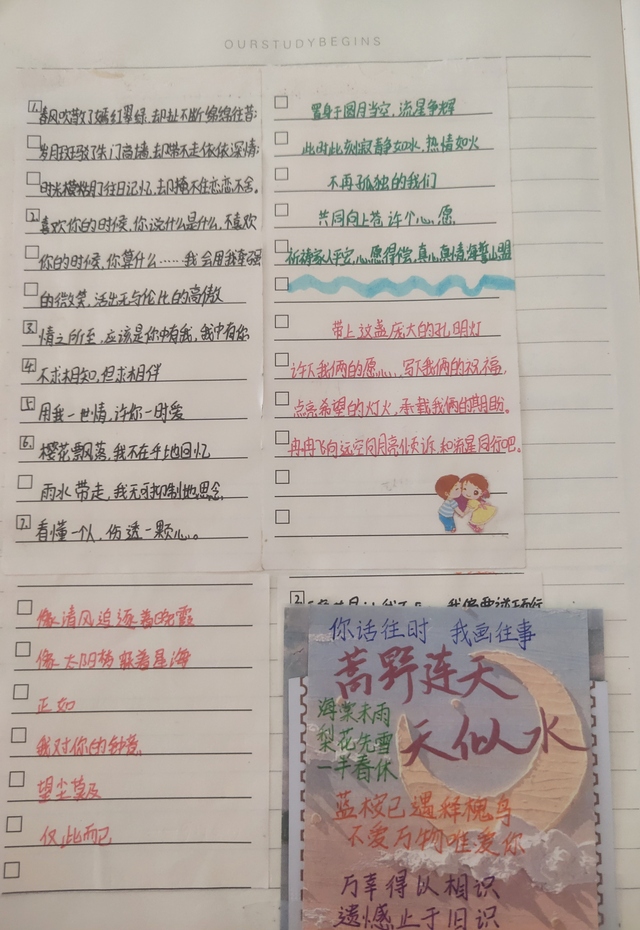 OURSTUDYBEGINS
1. 春风吹散了嫣红翠绿,却扯不断绵绵往昔;
岁月斑驳了朱门高墙,却带不走依依深情;
时光模糊了往日记忆,却掩不住恋恋不舍。
2. 喜欢你的时候,你说什么是什么,不喜欢
你的时候,你算什么……我会用我筆强
的微笑,活出无与伦比的高傲
3. 情之所至,应该是你中有我,我中有你
4. 不求相知,但求相伴
5. 用我一世情,许你一时爱
6. 樱花飘落,我不在乎地回忆
雨水带走,我无可抑制地思念
7. 看懂一个人,伤透一颗心。
置身于圆月当空,流星争辉
此时此刻寂静如水,热情如火
不再孤独的我们
共同向上苍许个心愿
祈祷家人平安,心愿得偿,真心真情,海誓山盟
带上这盏庞大的孔明灯
许下我俩的愿心,写下我俩的祝福,
点亮希望的灯火,承载我俩的期盼。
冉冉飞向远空向月亮倾诉,和流星同行吧。
像清风追逐着晚霞
像太阳躲着星海
正如
我对你的钟意
望尘莫及
仅此而已
你话往时 我画往事
蒿野连天
天似水
海棠未雨
梨花先雪
一半春休
蓝桉已遇释槐鸟
不爱万物唯爱你
万幸得以相识
遗憾止于旧识